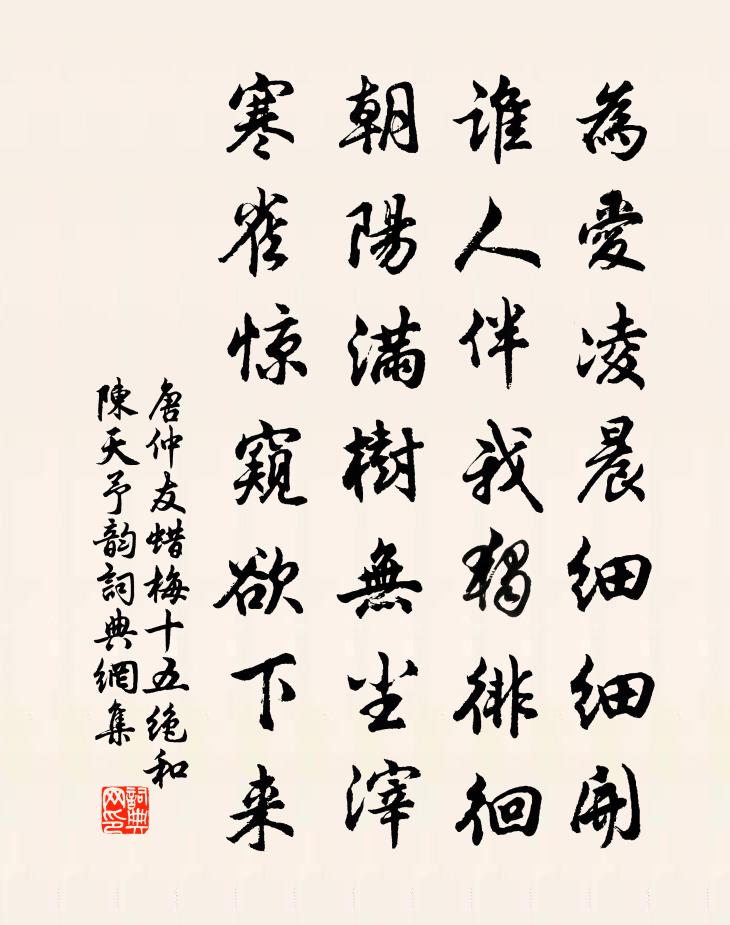 為愛凌晨細細開
誰人伴我獨徘徊
朝陽滿樹無尘滓
寒雀惊窺欲下来
唐仲友蜡梅十五絕和
陳天予韵詞典網集
詞典网印